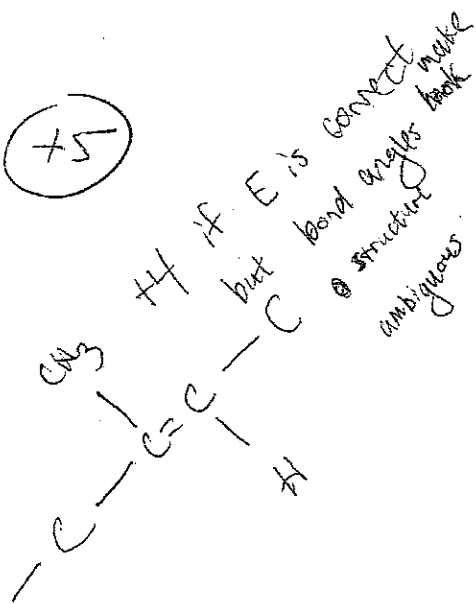 +5
+4 if E is correct
but bond angles make
structure look
ambiguous.
CH3
C
C=C
C
H